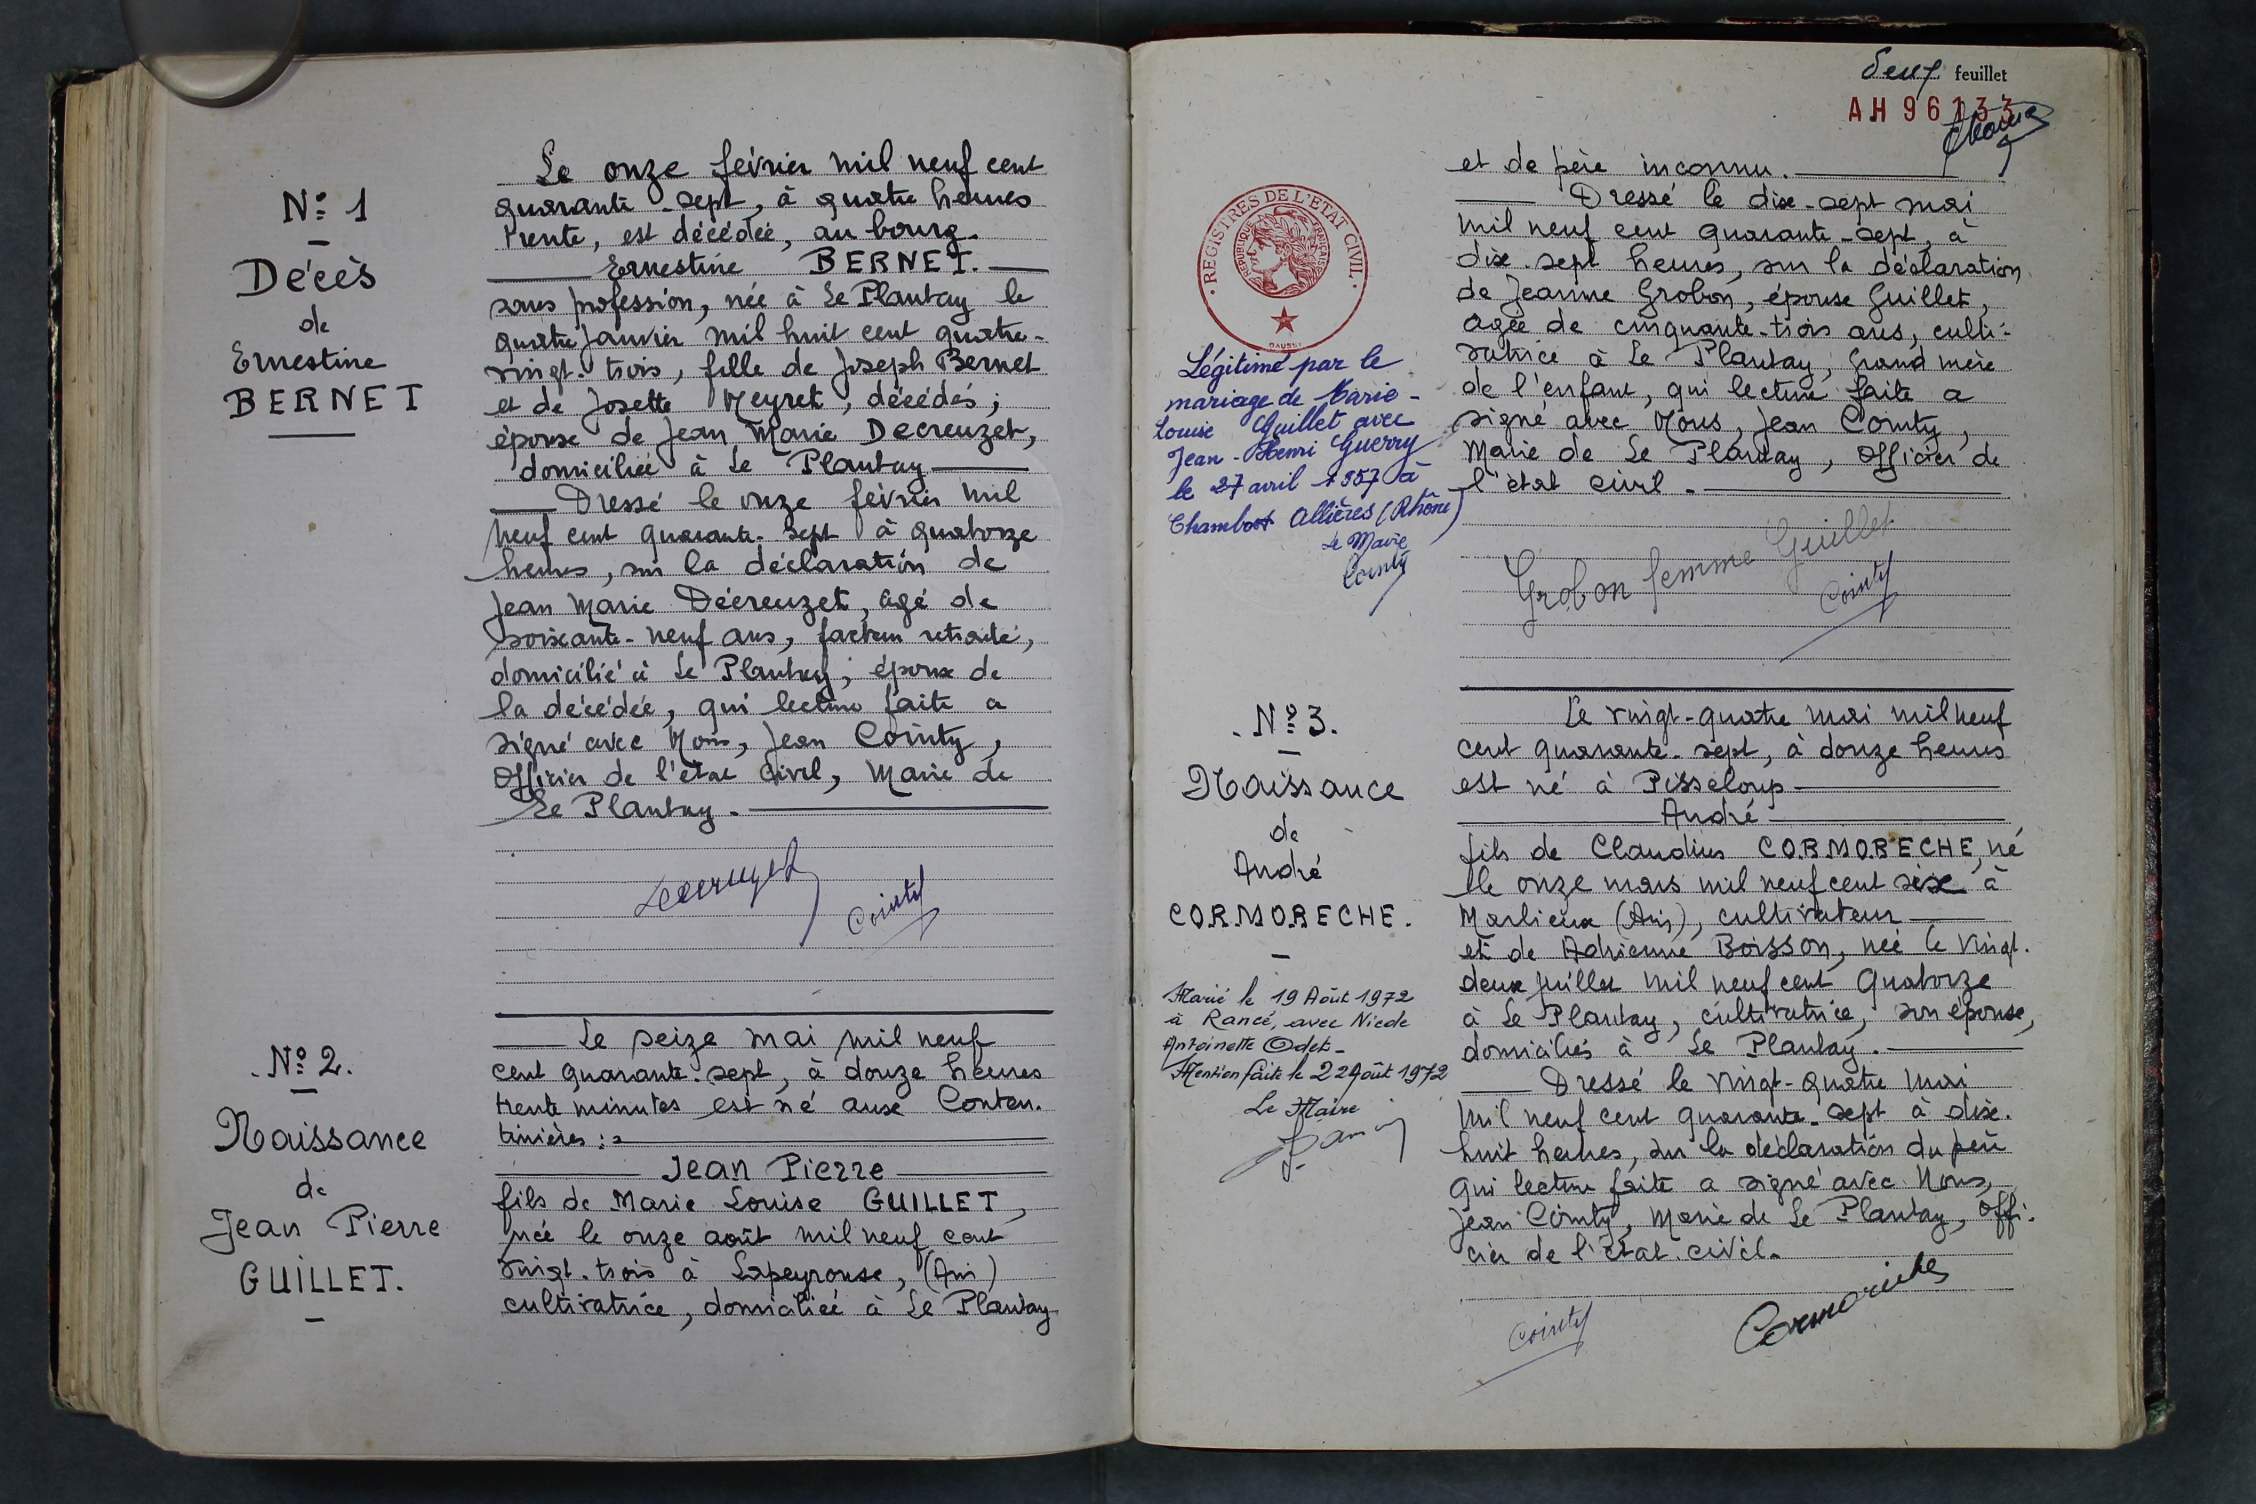 N° 1
Décès
de
Ernestine
BERNET
Le onze février mil neuf cent
quarante-sept, à quatre heures
trente, est décédée, au bourg
Ernestine BERNET.
sans profession, née à Le Plantay le
quatre janvier mil huit cent quatre-
vingt-trois, fille de Joseph Bernet
et de Josette Meyret, décédés;
épouse de Jean Marie Decreuzet,
domiciliée à Le Plantay
Dressé le onze février mil
neuf cent quarante-sept à quatorze
heures, sur la déclaration de
Jean Marie Décreuzet, agé de
soixante-neuf ans, facteur retraité,
domicilié à Le Plantay; époux de
la décédée, qui lecture faite a
signé avec Nous, Jean Cointy,
Officier de l'état civil, Maire de
Le Plantay.
Decreuzet
Cointy
N° 2.
Naissance
de
Jean Pierre
GUILLET.
Le seize mai mil neuf
cent quarante-sept, à douze heures
trente minutes est né aux Conten-
tinières :
Jean Pierre
fils de Marie Louise GUILLET,
née le onze août mil neuf cent
vingt-trois à Lapeyrouse, (Ain)
cultivatrice, domiciliée à Le Plantay
deux feuillet
AH 96133
et de père inconnu.
Dressé le dix-sept mai
mil neuf cent quarante-sept, à
dix-sept heures, sur la déclaration
de Jeanne Grobon, épouse Guillet,
agée de cinquante-trois ans, culti-
vatrice à Le Plantay, Grand mère
de l'enfant, qui lecture faite a
signé avec Nous, Jean Cointy,
Maire de Le Plantay, Officier de
l'état civil.
REGISTRES DE L'ETAT CIVIL
REPUBLIQUE FRANÇAISE
Légitimé par le
mariage de Marie-
Louise Guillet avec
Jean-Henri Guerry
le 27 avril 1957 à
Chambost Allières (Rhône)
Le Maire
Cointy
Grobon femme Guillet
Cointy
N° 3.
Naissance
de
André
CORMORECHE.
Marié le 19 Août 1972
à Rancé, avec Nicole
Antoinette Odet-
Mention faite le 22 Août 1972
Le Maire
Le vingt-quatre mai mil neuf
cent quarante-sept, à douze heures
est né à Pisseloup
André
fils de Claudius CORMORECHE, né
le onze mars mil neuf cent six à
Marlieux (Ain), cultivateur
et de Adrienne Boisson, née le vingt-
deux juillet mil neuf cent quatorze
à Le Plantay, cultivatrice, son épouse,
domiciliés à Le Plantay.
Dressé le vingt-quatre mai
mil neuf cent quarante-sept à dix-
huit heures, sur la déclaration du père
qui lecture faite a signé avec Nous,
Jean Cointy, Maire de Le Plantay, Offi-
cier de l'état civil.
Cointy
Cormorèche